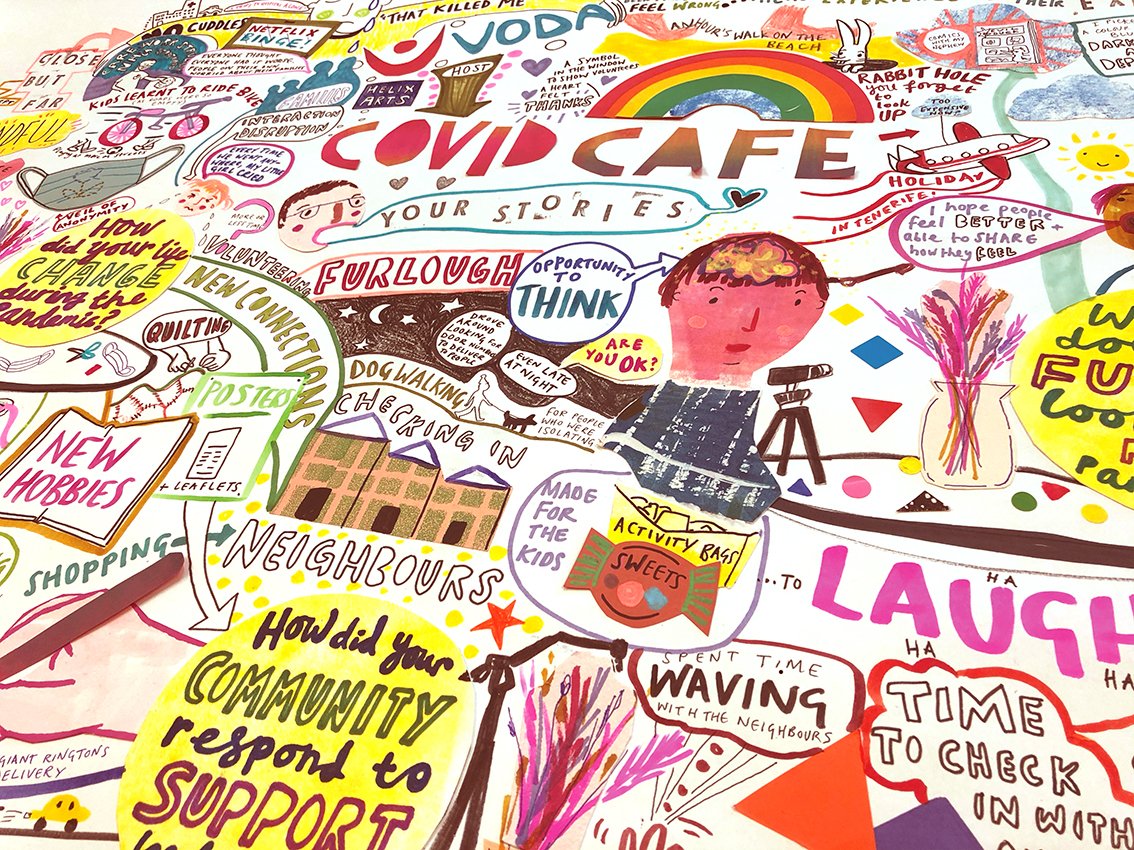 CUDDLES
NETFLIX
BINGE!
"THAT KILLED ME
VODA
FEEL WRONG..
AN HOUR'S WALK ON THE
BEACH
I PICKED
A COLOUR
COMICS
WITH MY
NEPHEW
CLOSE
BUT
FAR
EVERYONE THOUGHT
EVERYONE HAD IT WORSE.
PEOPLE ON THEIR OWN
HOST
HELIX
ARTS
A SYMBOL
IN THE WINDOW
TO SHOW VOLUNTEERS
A HEART
FELT
THANKS
RABBIT HOLE
you forget
to
look
UP
TOO
EXPENSIVE
NOW!
KIDS LEARNT TO RIDE BIKE
FAMILIES
INTERACTION
DISRUPTION
COVID CAFE
EVERY TIME
WE WENT ANY-
WHERE, MY LITTLE
GIRL CRIED
VEIL OF
ANONYMITY
MORE OR
LESS TIME
YOUR STORIES
HOLIDAY
IN TENERIFE!
I hope people
feel BETTER +
able to SHARE
how they FEEL
How
did your life
CHANGE
during the
Pandemic?
VOLUNTEERING
NEW CONNECTIONS
FURLOUGH
OPPORTUNITY
TO
THINK
ARE
YOU OK?
DROVE
AROUND
LOOKING FOR
DOOR NUMBERS
TO DELIVER
TO PEOPLE
EVEN LATE
AT NIGHT
QUILTING
DOG WALKING
FOR PEOPLE
WHO WERE
ISOLATING
CHECKING IN
POSTERS
+ LEAFLETS
NEW
HOBBIES
SHOPPING
NEIGHBOURS
MADE
FOR
THE
KIDS
ACTIVITY BAGS
SWEETS
...TO
LAUGH
HA
HA
HA
How did your
COMMUNITY
respond to
SUPPORT
SPENT TIME
WAVING
WITH THE NEIGHBOURS
TIME
TO CHECK
IN WITH
GIANT RINGTONS
DELIVERY